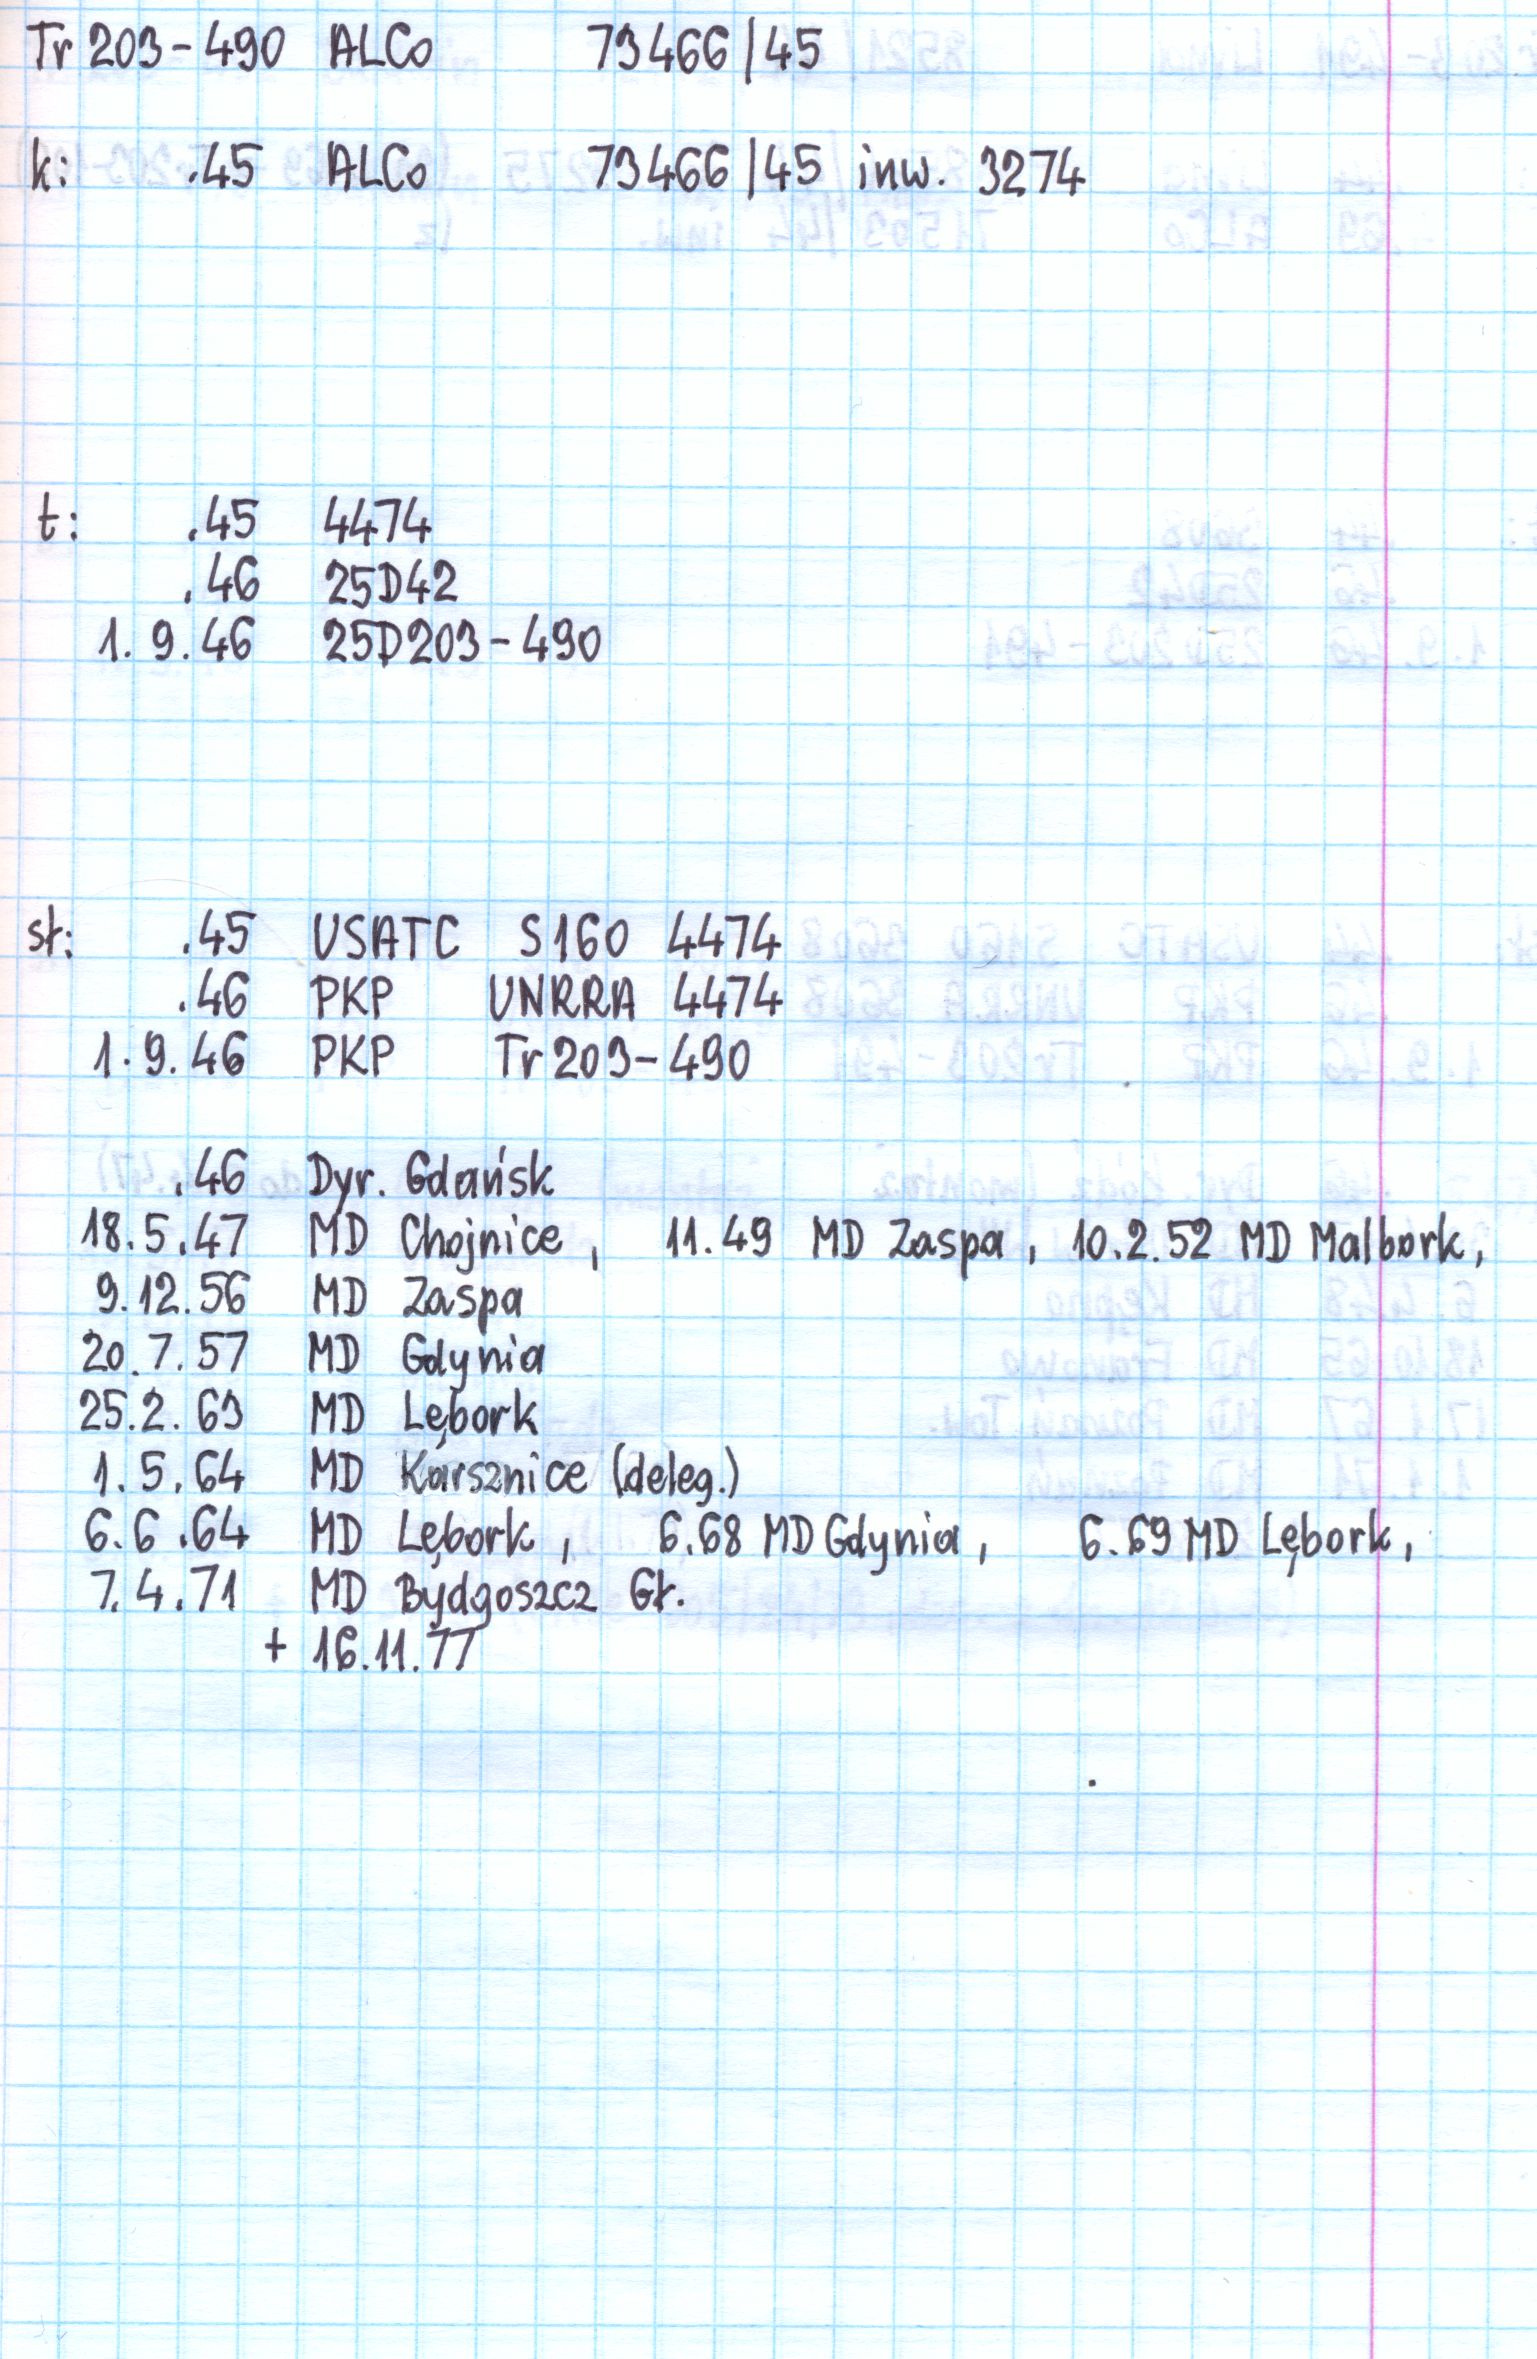 Tr 203-490 ALCo 73466/45
k: .45 ALCo 73466/45 inw. 3274
t: .45 4474
.46 25D42
1.9.46 25D203-490
st: .45 USATC S160 4474
.46 PKP UNRRA 4474
1.9.46 PKP Tr203-490
.46 Dyr. Gdańsk
18.5.47 MD Chojnice, 11.49 MD Zaspa, 10.2.52 MD Malbork,
9.12.56 MD Zaspa
20.7.57 MD Gdynia
25.2.63 MD Lębork
1.5.64 MD Karsznice (deleg.)
6.6.64 MD Lębork, 6.68 MD Gdynia, 6.69 MD Lębork,
7.4.71 MD Bydgoszcz Gł.
+ 16.11.77